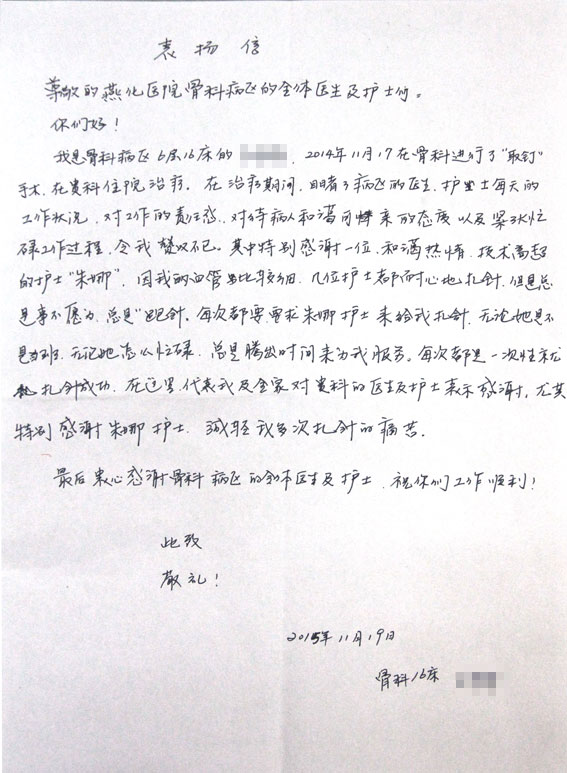 表扬信
尊敬的燕化医院骨科病区的全体医生及护士们。
你们好！
我是骨科病区6层16床的 ，2014年11月17在骨科进行了"取钉"
手术，在贵科住院治疗。在治疗期间，目睹了病区的医生、护士每天的
工作状况，对工作的责任感，对待病人和蔼可亲的态度以及紧张忙
碌工作过程，令我赞叹不已。其中特别感谢一位，和蔼热情，技术高超
的护士"朱娜"，因我的血管比较细，几位护士都耐心地扎针，但是总
是事不愿为，总是"跑针。每次都要要求朱娜护士来给我扎针，无论她是不
是当班，无论她怎么忙碌，总是腾出时间来为我服务。每次都是一次性就
能扎针成功，在这里，代表我及全家对贵科的医生及护士表示感谢，尤其
特别感谢朱娜护士，减轻我多次扎针的痛苦。
最后衷心感谢骨科病区的全体医生及护士，祝你们工作顺利！
此致
敬礼！
2015年11月19日
骨科16床